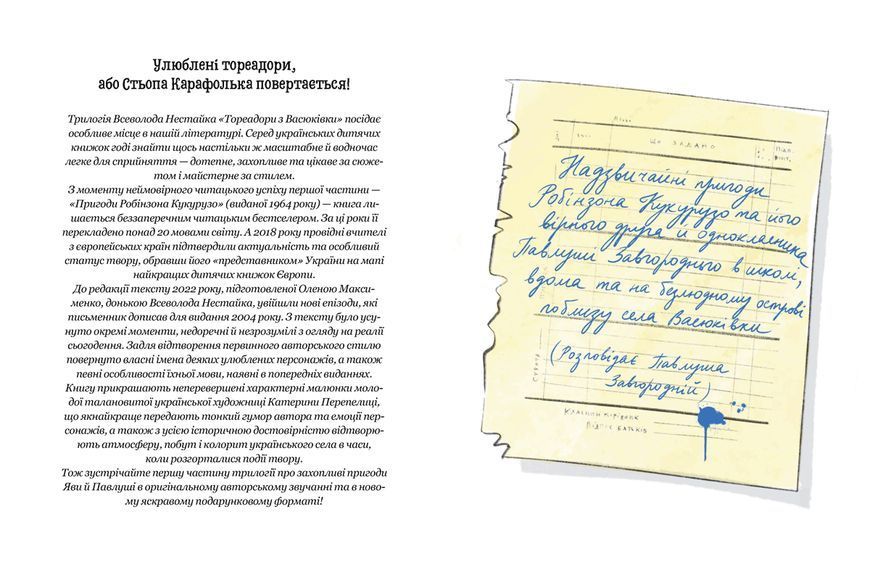 Улюблені тореадори,
або Стьопа Карафолька повертається!
Трилогія Всеволода Нестайка «Тореадори з Васюківки» посідає
особливе місце в нашій літературі. Серед українських дитячих
книжок годі знайти щось настільки ж масштабне й водночас
легке для сприйняття — дотепне, захопливе та цікаве за сюже-
том і майстерне за стилем.
З моменту неймовірного читацького успіху першої частини —
«Пригоди Робінзона Кукурузо» (виданої 1964 року) — книга ли-
шається беззаперечним читацьким бестселером. За ці роки її
перекладено понад 20 мовами світу. А 2018 року провідні вчителі
з європейських країн підтвердили актуальність та особливий
статус твору, обравши його «представником» України на мапі
найкращих дитячих книжок Європи.
До редакції тексту 2022 року, підготовленої Оленою Макси-
менко, донькою Всеволода Нестайка, увійшли нові епізоди, які
письменник дописав для видання 2004 року. З тексту було усу-
нуто окремі моменти, недоречні й незрозумілі з огляду на реалії
сьогодення. Задля відтворення первинного авторського стилю
повернуто власні імена деяких улюблених персонажів, а також
певні особливості їхньої мови, наявні в попередніх виданнях.
Книгу прикрашають неперевершені характерні малюнки моло-
дої талановитої української художниці Катерини Перепелиці,
що якнайкраще передають тонкий гумор автора та емоції пер-
сонажів, а також з усією історичною достовірністю відтворю-
ють атмосферу, побут і колорит українського села в часи,
коли розгорталися події твору.
Тож зустрічайте першу частину трилогії про захопливі пригоди
Яви й Павлуші в оригінальному авторському звучанні та в ново-
му яскравому подарунковому форматі!
ЩО ЗАДАНО
Надзвичайні пригоди
Робінзона Кукурузо та його
вірного друга й однокласника
Павлуші Завгороднього в школі,
вдома та на безлюдному острові
поблизу села Васюківки
(Розповідає Павлуша
Завгородній)
СУБОТА
КЛАСНИЙ КЕРІВНИК
ПІДПИС БАТЬКІВ